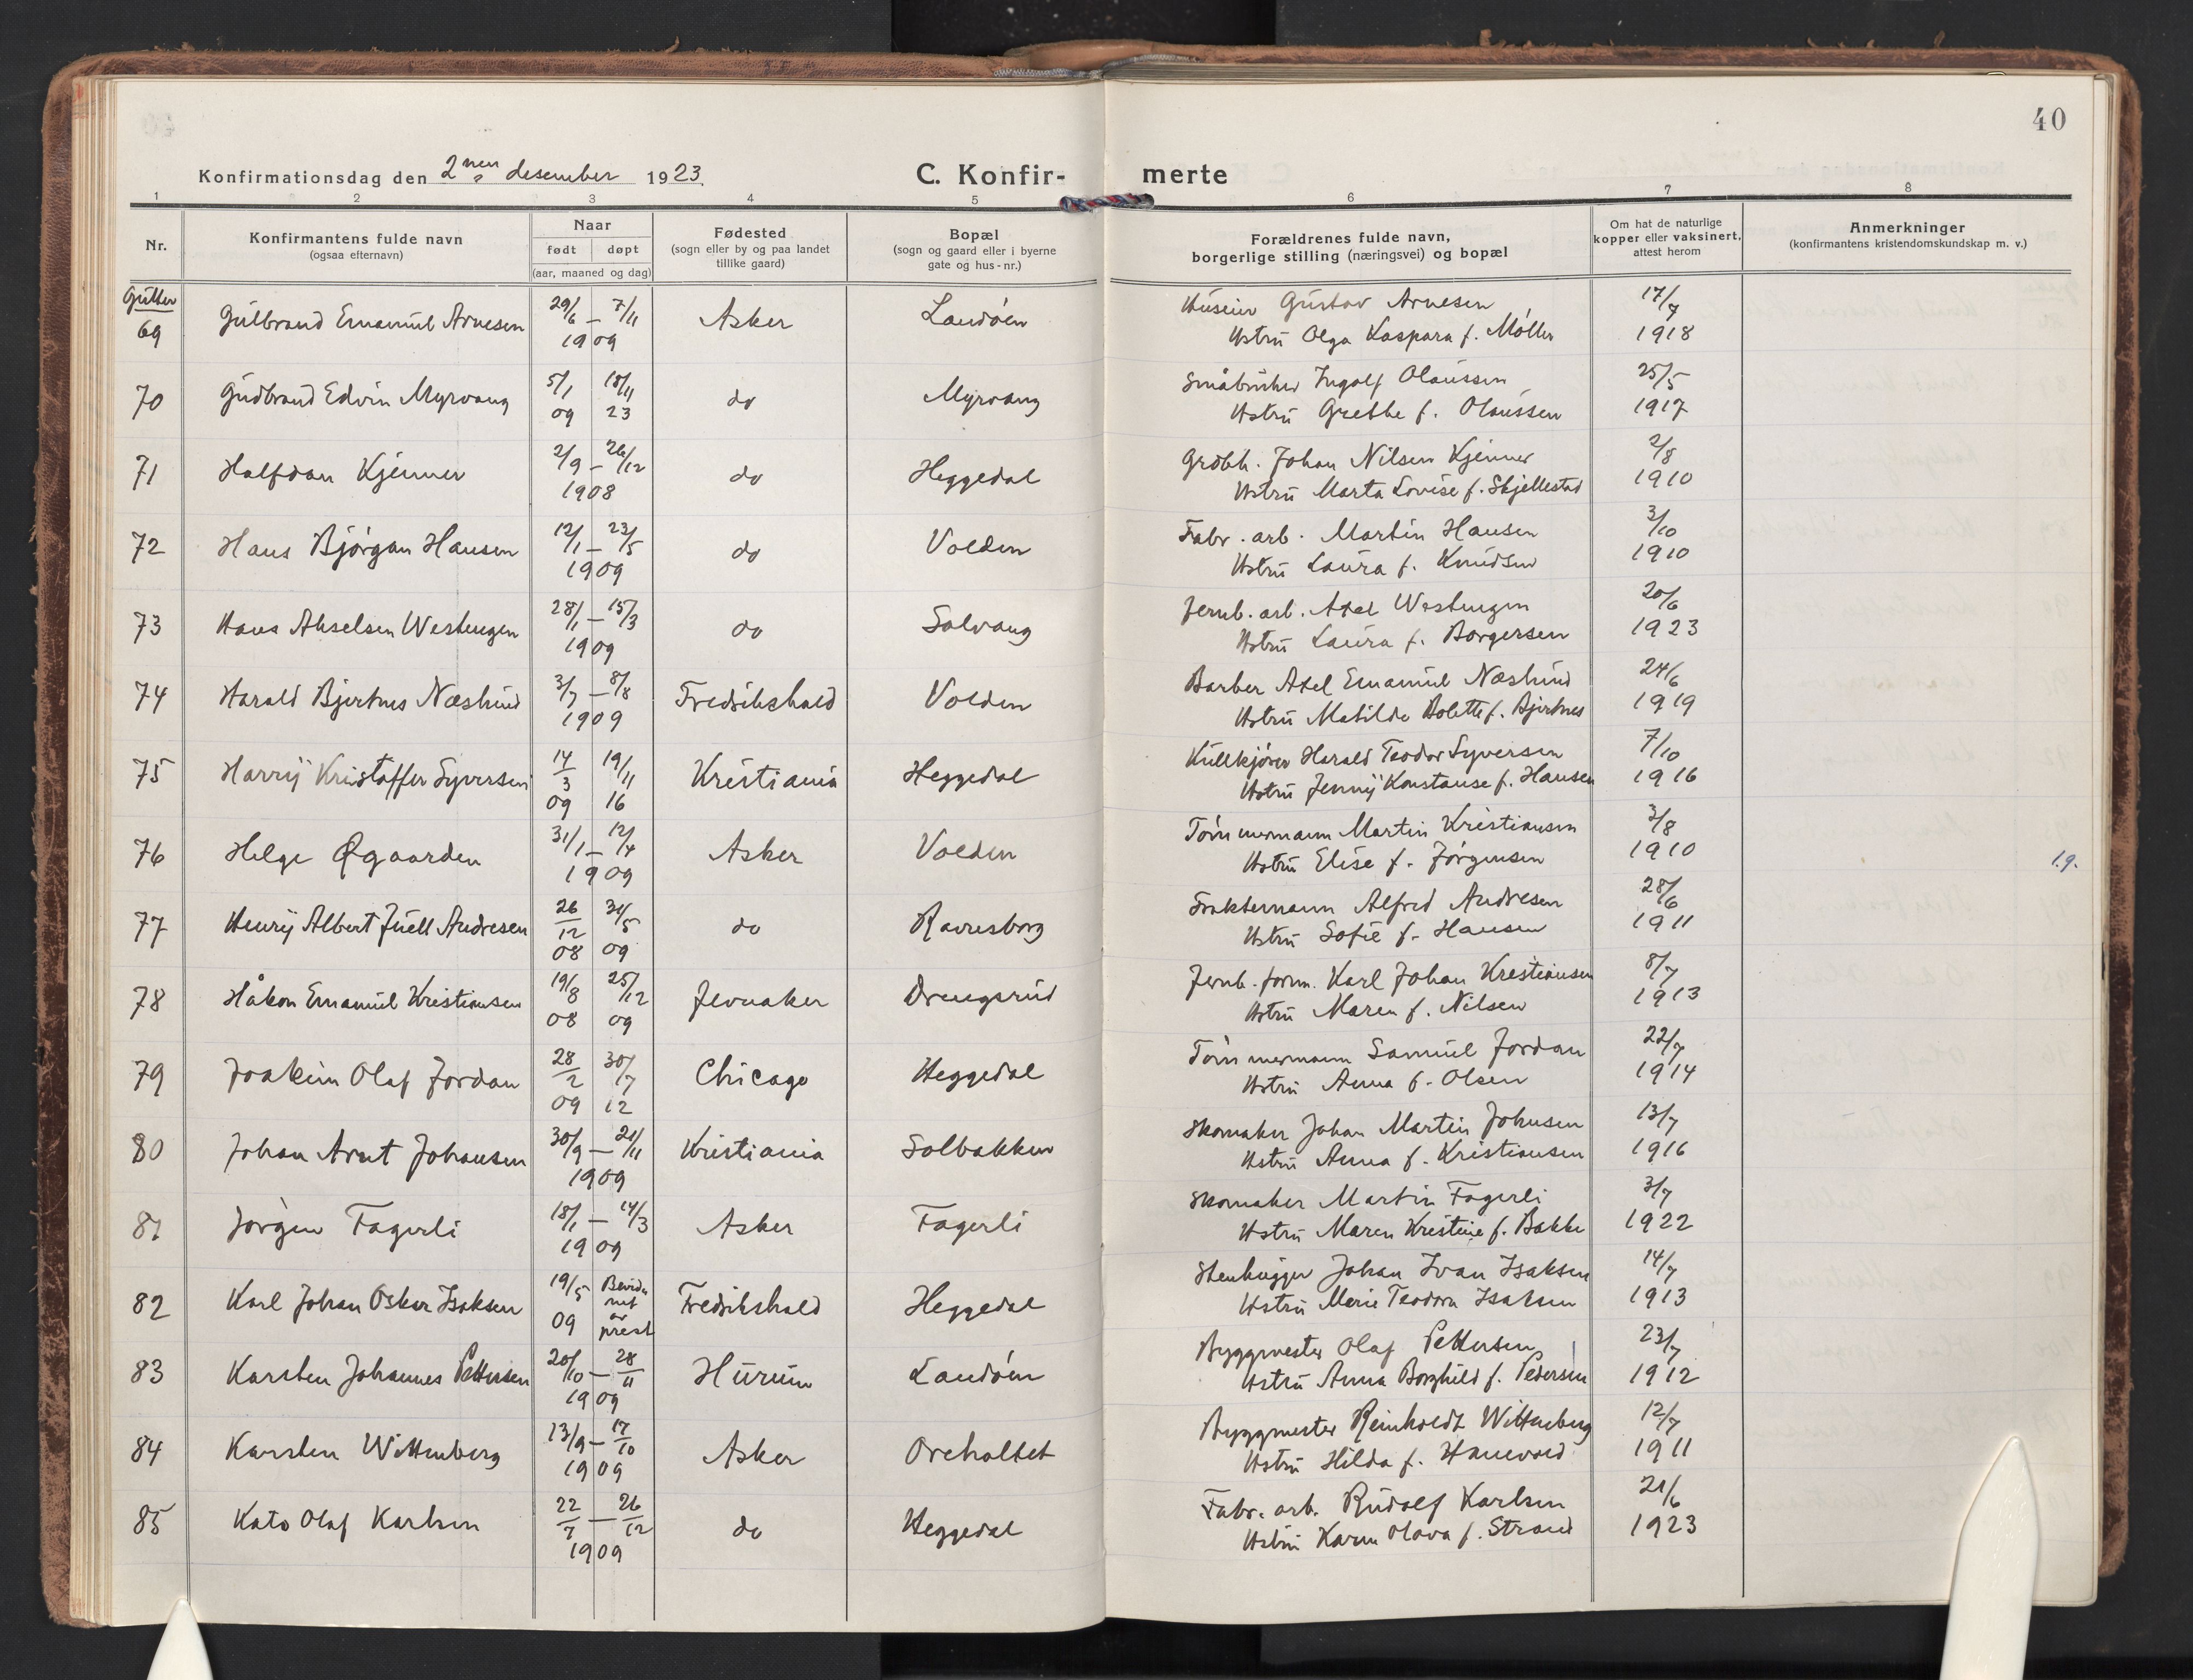 40
Konfirmationsdag den 2nen desember 1923.
C. Konfir-
merte
1 2 3 4 5 6 7 8
Nr.
Konfirmantens fulde navn
(ogsaa efternavn)
Naar
født døpt
(aar, maaned og dag)
Fødested
(sogn eller by og paa landet
tillike gaard)
Bopæl
(sogn og gaard eller i byerne
gate og hus-nr.)
Forældrenes fulde navn,
borgerlige stilling (næringsvei) og bopæl
Om hat de naturlige
kopper eller vaksinert,
attest herom
Anmerkninger
(konfirmantens kristendomskundskap m. v.)
Gutter
69 Gulbrand Emanuel Arnesen 29/6 – 7/11 1909 Asker Landøen Huseier Gustav Arnesen 17/7
Hstru Olga Kaspara f. Møller 1918
70 Gudbrand Edvin Myrvang 5/1 09 18/11 23 do Myrvang Småbruker Ingolf Olaussen 25/5
Hstru Grethe f. Olaussen 1917
71 Halfdan Kjenner 2/9 – 26/12 1908 do Heggedal Grdbh. Johan Nilsen Kjenner 2/8
Hstru Marta Lovise f. Skjellestad 1910
72 Hans Bjørgan Hansen 12/1 – 23/5 1909 do Volden Fabr. arb. Martin Hansen 3/10
Hstru Laura f. Knudsen 1910
73 Hans Akselsen Westengen 28/1 – 15/3 1909 do Solvang Jernb. arb. Axel Westengen 20/6
Hstru Laura f. Borgersen 1923
74 Harald Bjerknes Næslund 3/7 – 8/8 1909 Fredrikshald Volden Barber Axel Emanuel Næslund 24/6
Hstru Matilde Bolette f. Bjerknes 1919
75 Harry Kristoffer Syversen 14/3 09 19/11 16 Kristiania Heggedal Kullkjører Harald Teodor Syversen 7/10
Hstru Jenny Konstanse f. Hansen 1916
76 Helge Øgaarden 31/1 – 12/4 1909 Asker Volden Tømmermann Martin Kristiansen 3/8
Hstru Elise f. Jørgensen 1910 1.9.
77 Henry Albert Juell Andresen 26/12 08 31/5 09 do Ravnsborg Fraktemann Alfred Andresen 28/6
Hstru Sofie f. Hansen 1911
78 Håkon Emanuel Kristiansen 19/8 08 25/12 09 Jevnaker Drengsrud Jernb. form. Karl Johan Kristiansen 8/7
Hstru Maren f. Nilsen 1913
79 Joakim Olaf Jordan 28/2 09 30/7 12 Chicago Heggedal Tømmermann Samuel Jordan 22/7
Hstru Anna f. Olsen 1914
80 Johan Arnt Johansen 30/9 – 21/11 1909 Kristiania Solbakken Skomaker Johan Martin Johnsen 13/7
Hstru Anna f. Kristiansen 1916
81 Jørgen Fagerli 18/1 – 14/3 1909 Asker Fagerli Skomaker Martin Fagerli 3/7
Hstru Maren Kristine f. Bakke 1922
82 Karl Johan Oskar Isaksen 19/5 09 Bevidnet av prest Fredrikshald Heggedal Stenhugger Johan Ivan Isaksen 14/7
Hstru Marie Teodora Isaksen 1913
83 Karsten Johannes Pettersen 20/10 – 28/11 1909 Hurum Landøen Byggmester Olaf Pettersen 23/7
Hstru Anna Borghild f. Pedersen 1912
84 Karsten Wittenberg 13/9 – 17/10 1909 Asker Oreholtet Byggmester Reinholdt Wittenberg 12/7
Hstru Hilda f. Hanevold 1911
85 Kato Olaf Karlsen 22/7 – 26/12 1909 do Heggedal Fabr. arb. Rudolf Karlsen 21/6
Hstru Karen Olava f. Strand 1923